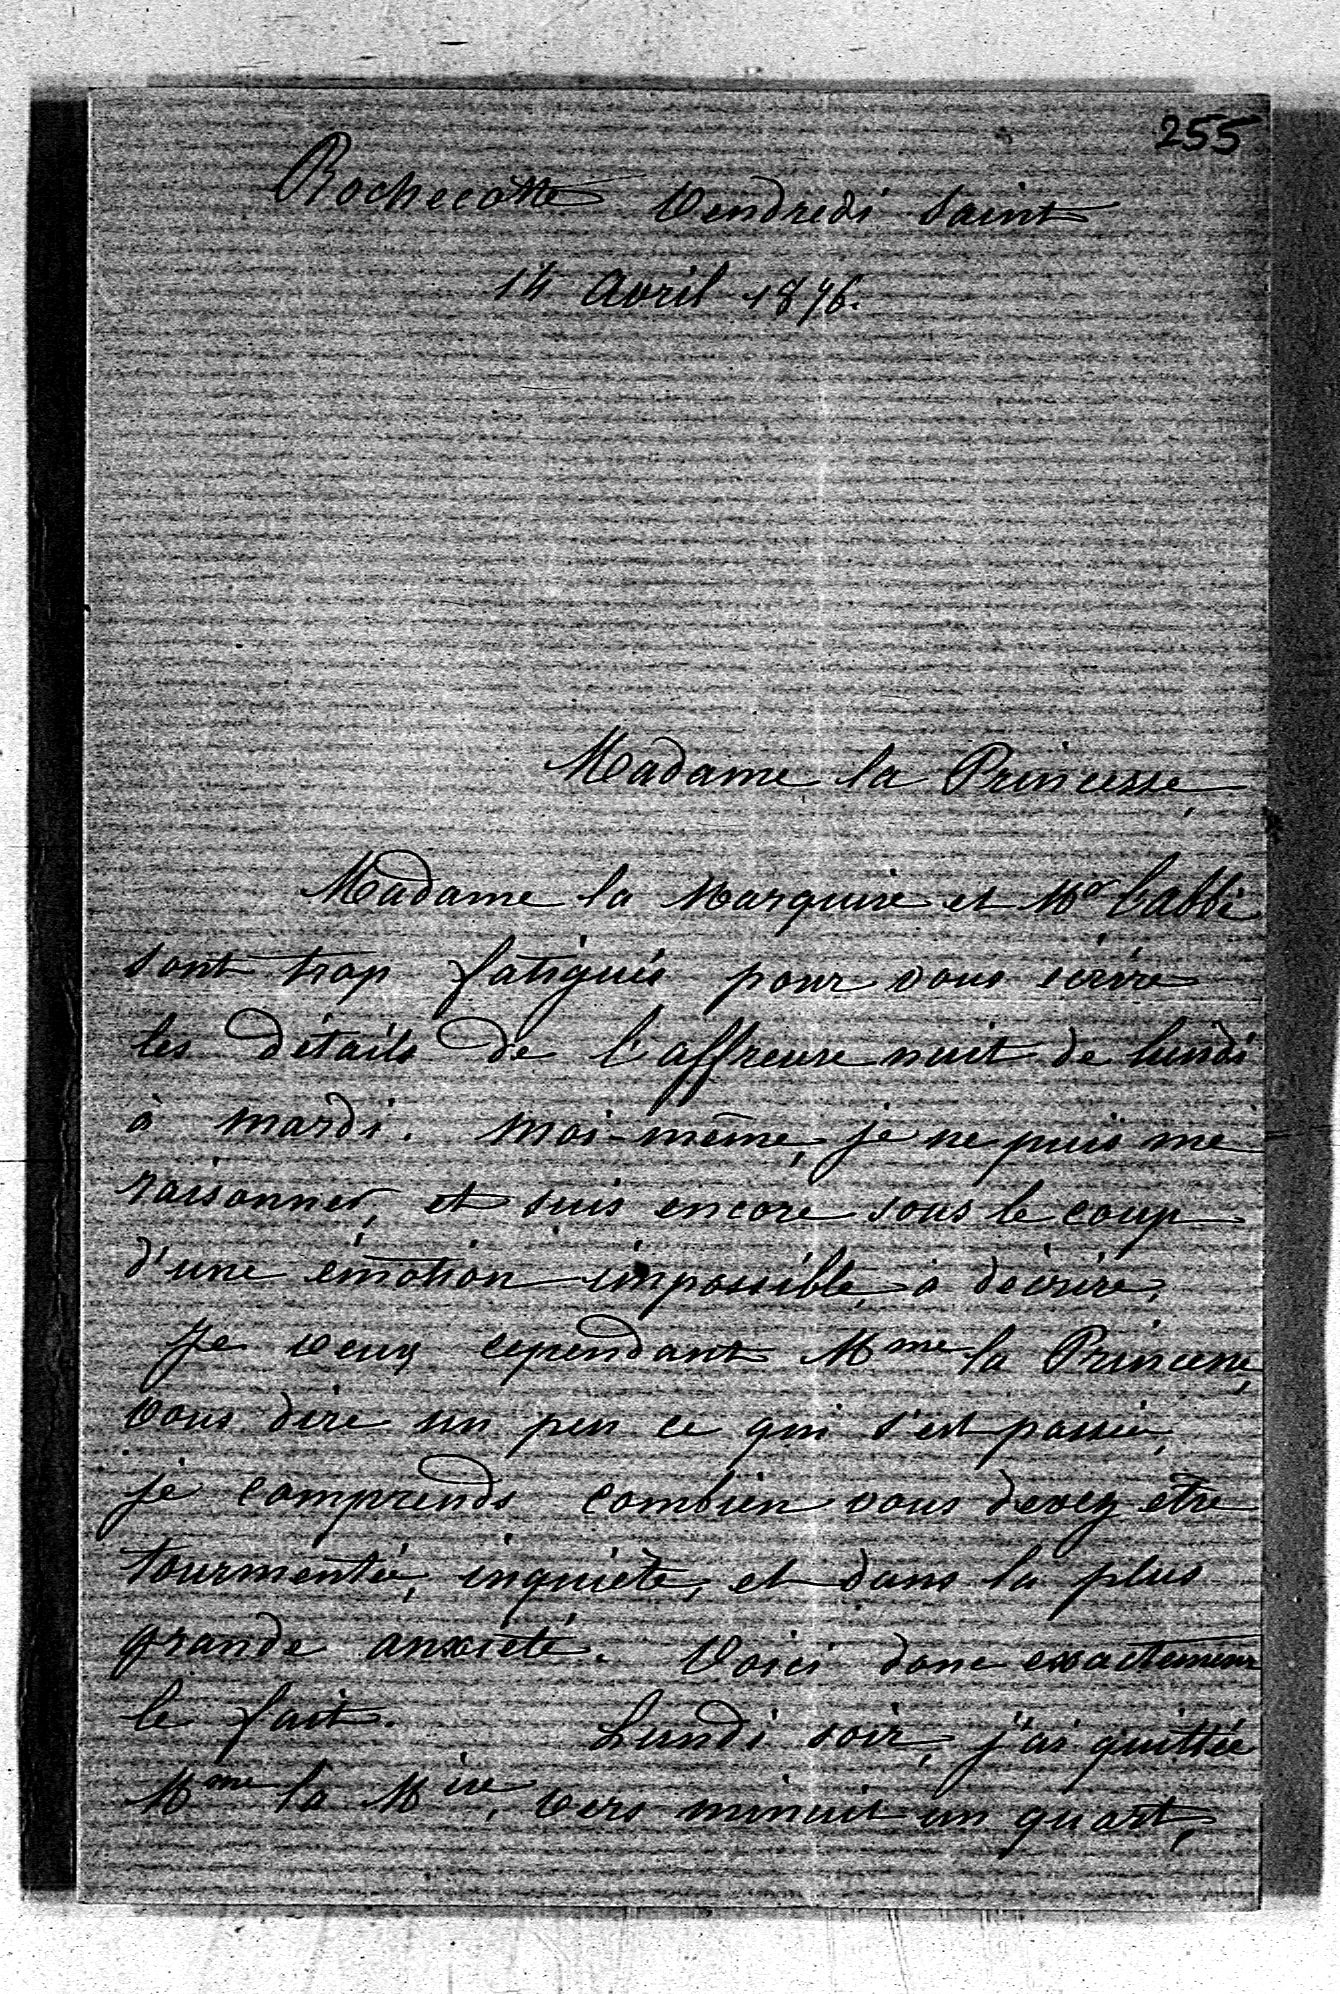 255
Rochecotte Vendredi Saint
14 avril 1876.
Madame la Princesse,
Madame la Marquise et Mr l'abbé
sont trop fatigués pour vous écrire
les détails de l'affreuse nuit de lundi
à mardi. Moi-même, je ne puis me
raisonner, et suis encore sous le coup
d'une émotion impossible à décrire.
Je veux cependant Mme la Princesse,
vous dire un peu ce qui s'est passée,
je comprends combien vous devez être
tourmentée, inquiète, et dans la plus
grande anxiété. Voici donc exactement
le fait. Lundi soir, j'ai quittée
Mme la Mise, vers minuit un quart,